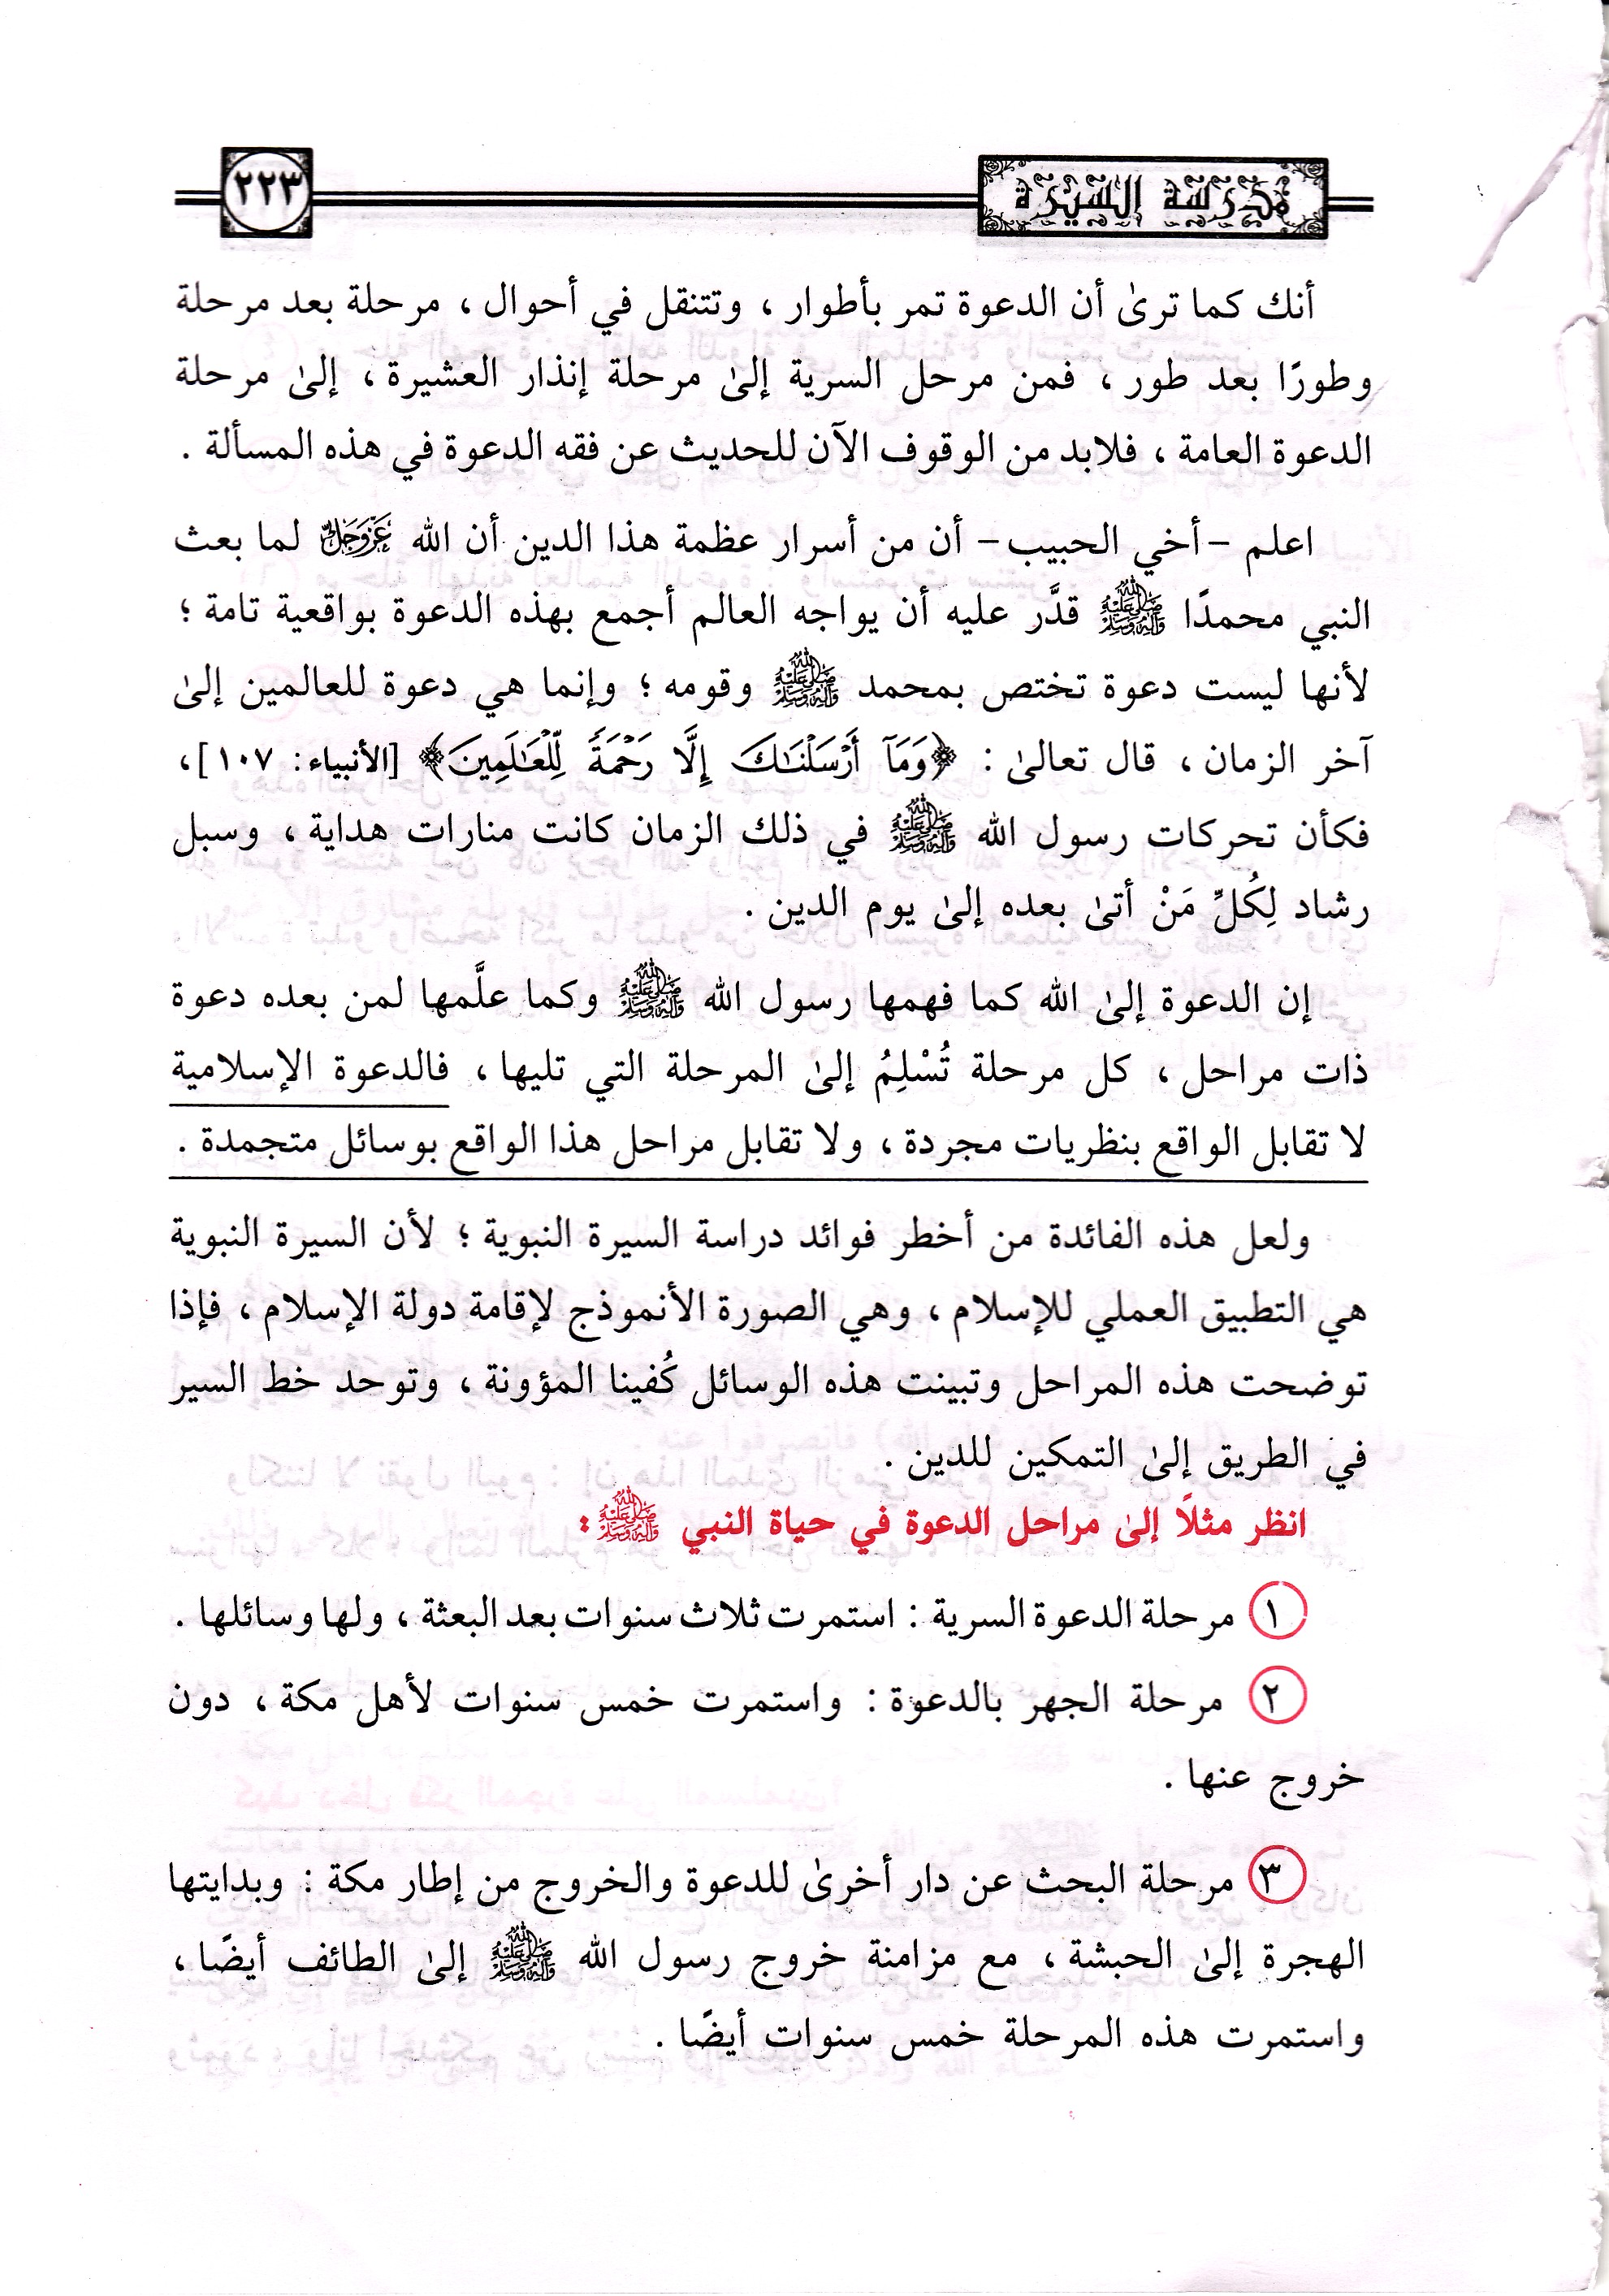 مدرسة السيرة
٢٢٣
أنك كما ترىٰ أن الدعوة تمر بأطوار ، وتتنقل في أحوال ، مرحلة بعد مرحلة
وطورًا بعد طور ، فمن مرحل السرية إلىٰ مرحلة إنذار العشيرة ، إلىٰ مرحلة
الدعوة العامة ، فلابد من الوقوف الآن للحديث عن فقه الدعوة في هذه المسألة .
اعلم –أخي الحبيب– أن من أسرار عظمة هذا الدين أن الله عَزَّوَجَلَّ لما بعث
النبي محمدًا ﷺ قدَّر عليه أن يواجه العالم أجمع بهذه الدعوة بواقعية تامة ؛
لأنها ليست دعوة تختص بمحمد ﷺ وقومه ؛ وإنما هي دعوة للعالمين إلىٰ
آخر الزمان ، قال تعالىٰ : ﴿وَمَآ أَرْسَلْنَٰكَ إِلَّا رَحْمَةً لِّلْعَٰلَمِينَ﴾ [الأنبياء: ١٠٧]،
فكأن تحركات رسول الله ﷺ في ذلك الزمان كانت منارات هداية ، وسبل
رشاد لِكُلِّ مَنْ أتىٰ بعده إلىٰ يوم الدين .
إن الدعوة إلىٰ الله كما فهمها رسول الله ﷺ وكما علَّمها لمن بعده دعوة
ذات مراحل ، كل مرحلة تُسْلِمُ إلىٰ المرحلة التي تليها ، فالدعوة الإسلامية
لا تقابل الواقع بنظريات مجردة ، ولا تقابل مراحل هذا الواقع بوسائل متجمدة .
ولعل هذه الفائدة من أخطر فوائد دراسة السيرة النبوية ؛ لأن السيرة النبوية
هي التطبيق العملي للإسلام ، وهي الصورة الأنموذج لإقامة دولة الإسلام ، فإذا
توضحت هذه المراحل وتبينت هذه الوسائل كُفينا المؤونة ، وتوحد خط السير
في الطريق إلىٰ التمكين للدين .
انظر مثلًا إلىٰ مراحل الدعوة في حياة النبي ﷺ :
١ مرحلة الدعوة السرية : استمرت ثلاث سنوات بعد البعثة ، ولها وسائلها .
٢ مرحلة الجهر بالدعوة : واستمرت خمس سنوات لأهل مكة ، دون
خروج عنها .
٣ مرحلة البحث عن دار أخرىٰ للدعوة والخروج من إطار مكة : وبدايتها
الهجرة إلىٰ الحبشة ، مع مزامنة خروج رسول الله ﷺ إلىٰ الطائف أيضًا ،
واستمرت هذه المرحلة خمس سنوات أيضًا .